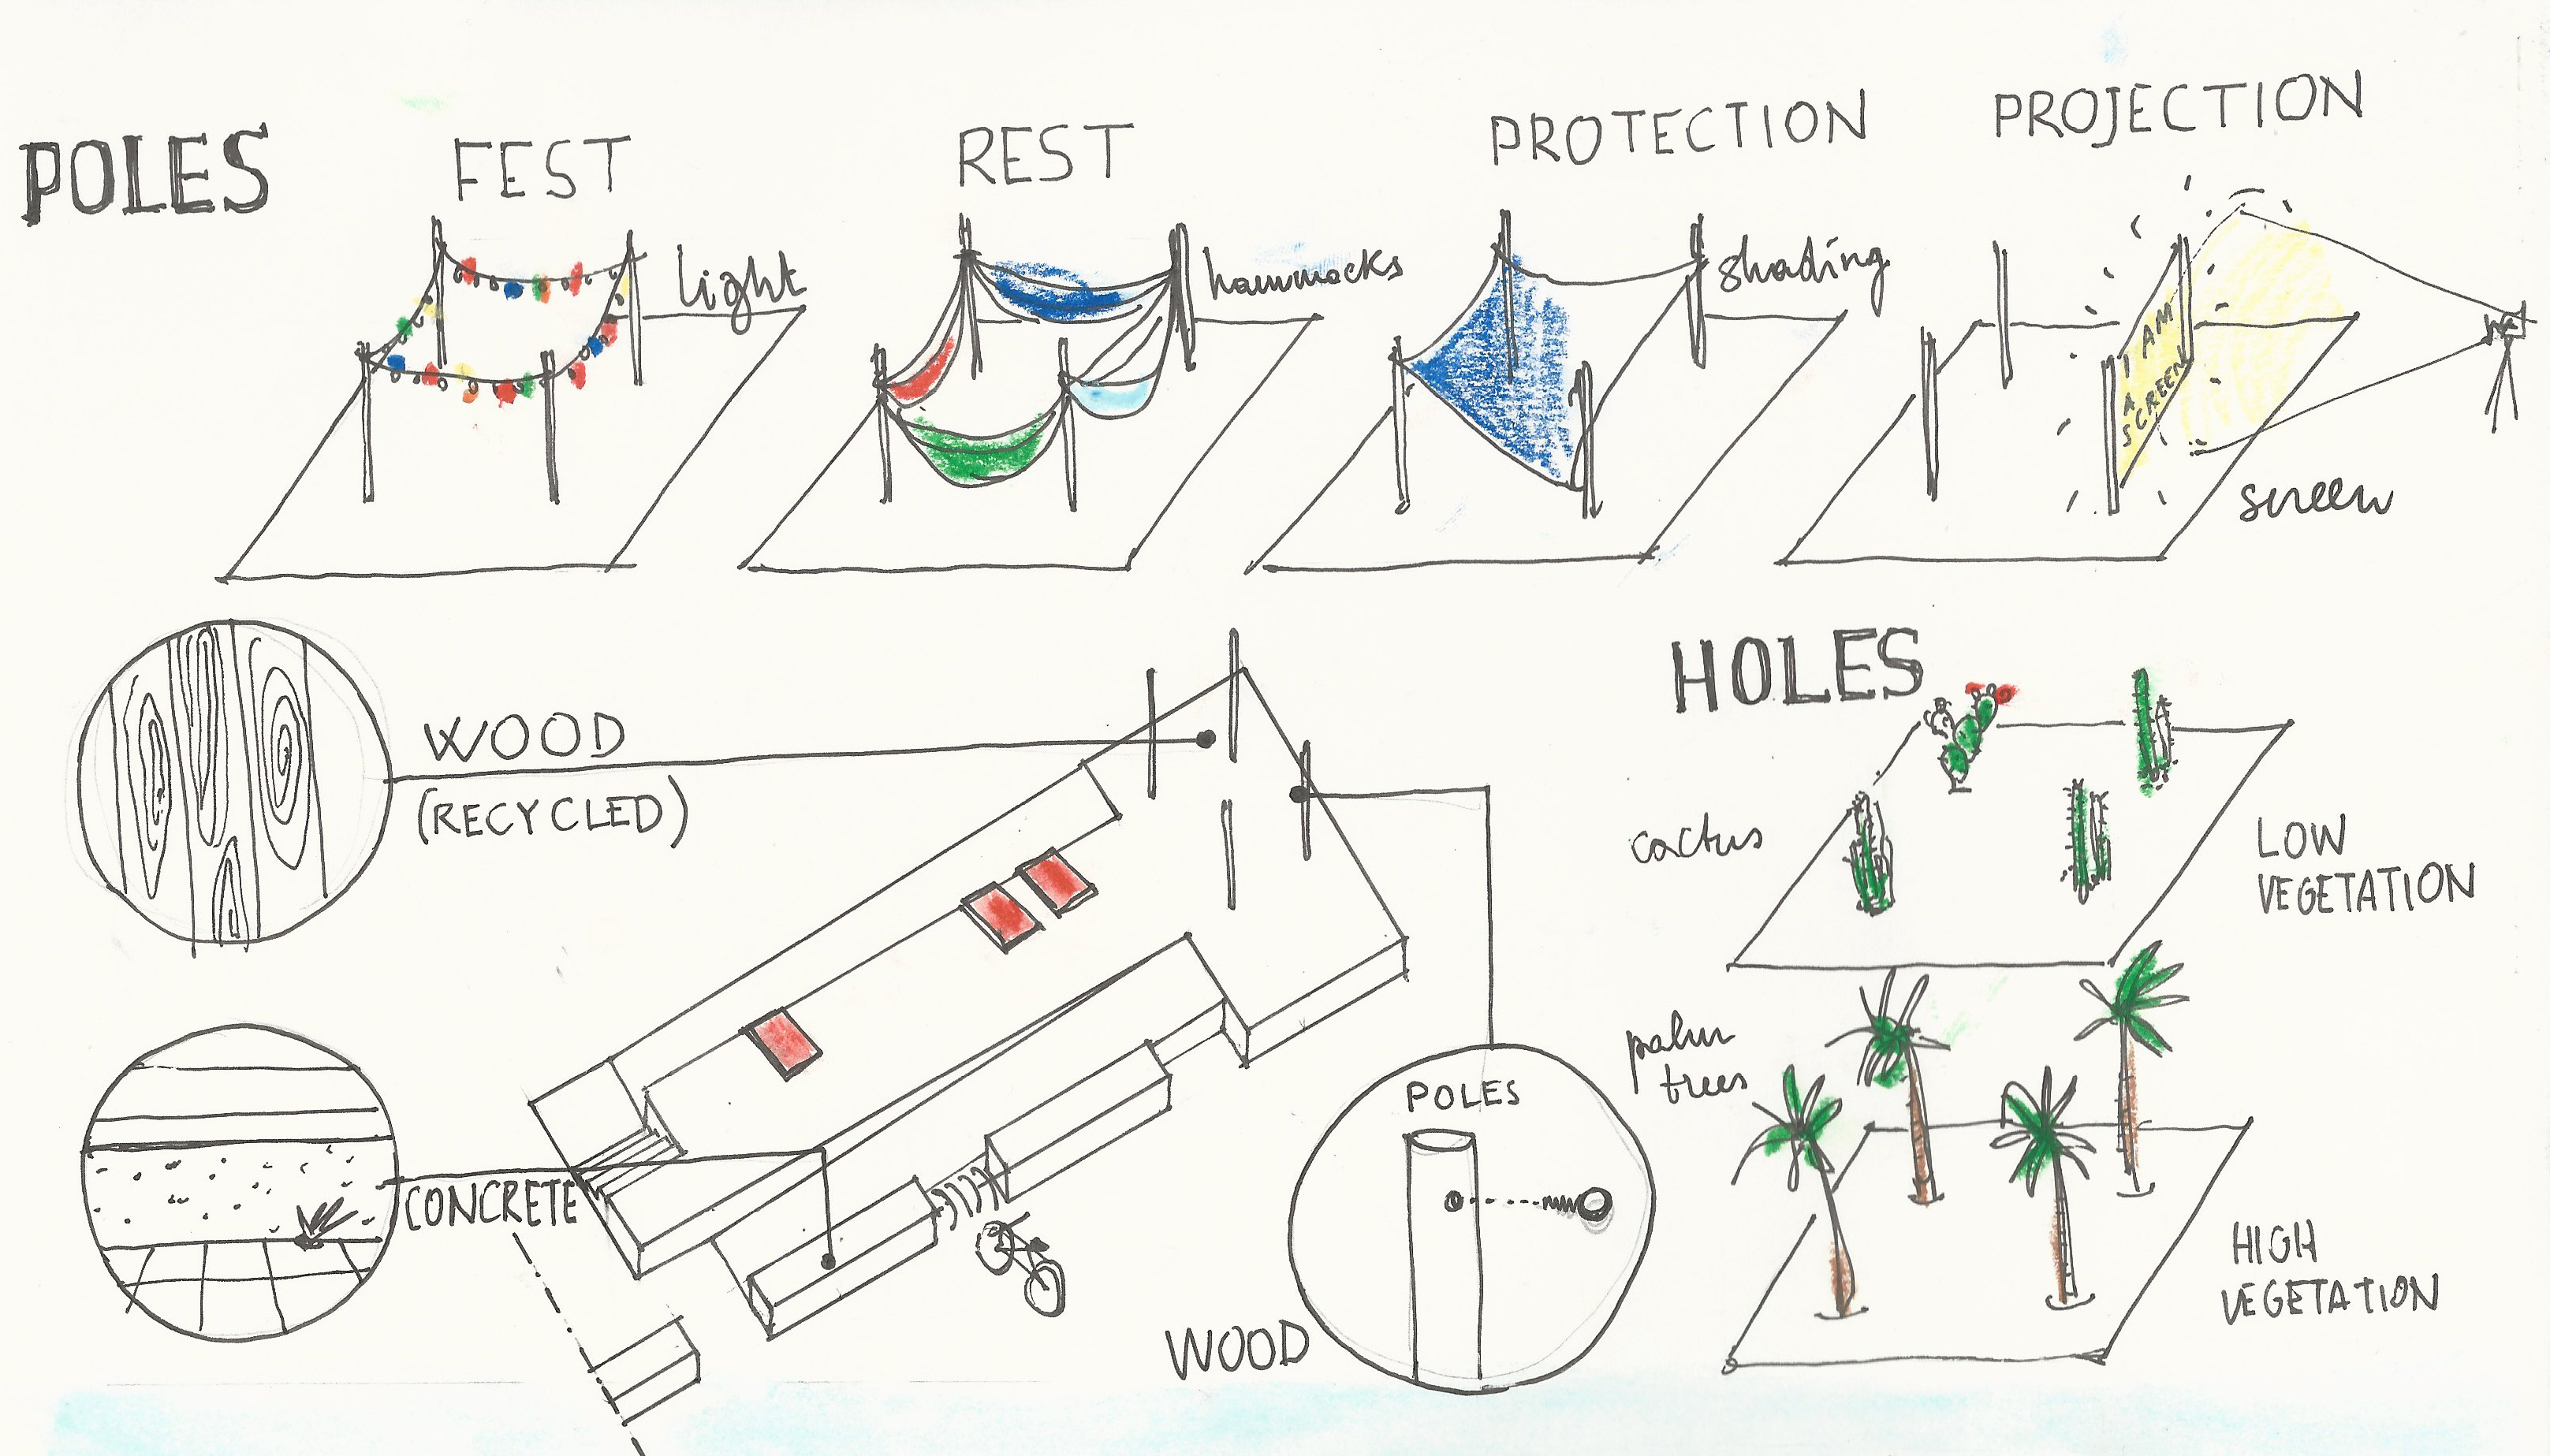 POLES
FEST
light
REST
hammocks
PROTECTION
shading
PROJECTION
I AM
A
SCREEN
screen
WOOD
(RECYCLED)
CONCRETE
POLES
WOOD
HOLES
cactus
LOW
VEGETATION
palm
trees
HIGH
VEGETATION